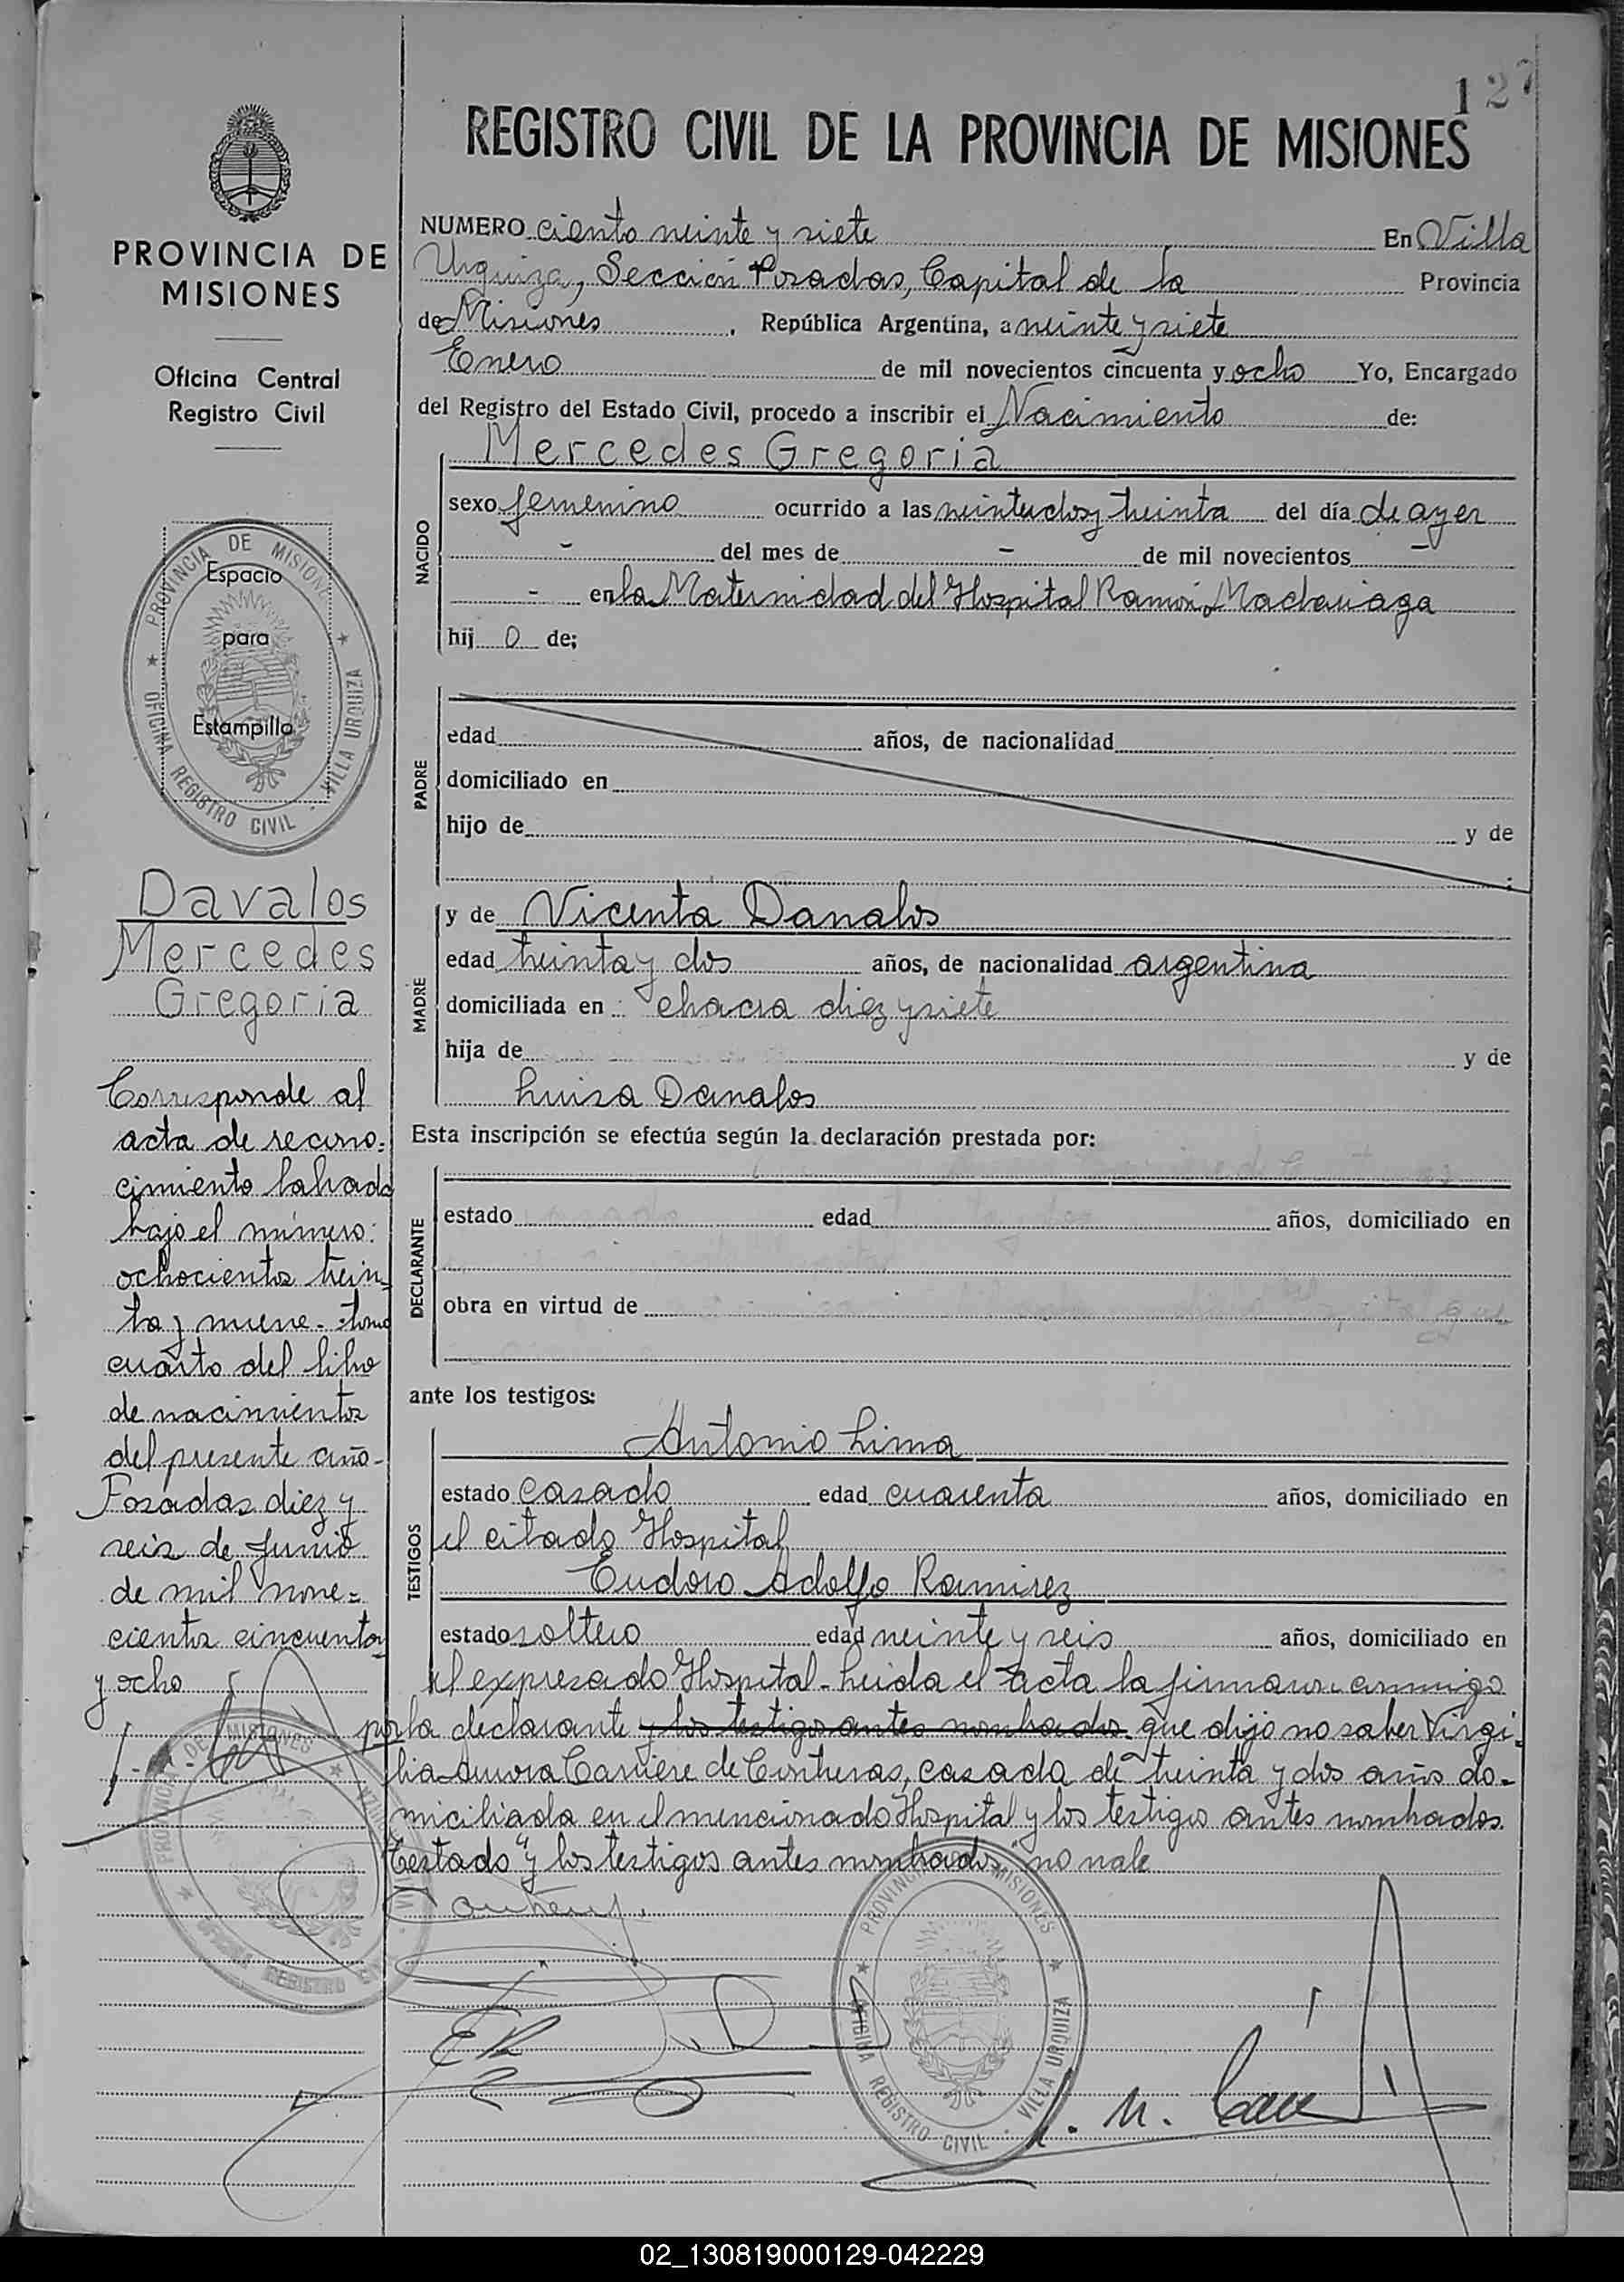 127
REGISTRO CIVIL DE LA PROVINCIA DE MISIONES
PROVINCIA DE
MISIONES
Oficina Central
Registro Civil
PROVINCIA DE MISIONES
Espacio
para
Estampilla
OFICINA REGISTRO CIVIL - VILLA URQUIZA
Davalos
Mercedes
Gregoria
Corresponde al
acta de recono-
cimiento labrada
bajo el número:
ochocientos trein-
ta y nueve - tomo
cuarto del libro
de nacimientos
del presente año-
Posadas diez y
seis de Junio
de mil nove=
cientos cincuenta
y ocho
NUMERO ciento veinte y siete En Villa
Urquiza, Sección Posadas, Capital de la Provincia
de Misiones, República Argentina, a veinte y siete
Enero de mil novecientos cincuenta y ocho Yo, Encargado
del Registro del Estado Civil, procedo a inscribir el Nacimiento de:
Mercedes Gregoria
NACIDO
sexo femenino ocurrido a las veintidos y treinta del día de ayer
- del mes de - de mil novecientos -
- en la Maternidad del Hospital Ramón Madariaga
hij o de;
PADRE
edad años, de nacionalidad
domiciliado en
hijo de y de
MADRE
y de Vicenta Davalos
edad treinta y dos años, de nacionalidad argentina
domiciliada en chacra diez y siete
hija de y de
Luisa Davalos
Esta inscripción se efectúa según la declaración prestada por:
DECLARANTE
estado edad años, domiciliado en
obra en virtud de
ante los testigos:
TESTIGOS
Antonio Lima
estado casado edad cuarenta años, domiciliado en
el citado Hospital
Eudoro Adolfo Ramirez
estado soltero edad veinte y seis años, domiciliado en
el expresado Hospital - Leida el acta la firmaron conmigo
por la declarante y los testigos antes nombrados que dijo no saber Virgi-
lia Aurora Carriere de Contreras, casada de treinta y dos años do-
miciliada en el mencionado Hospital y los testigos antes nombrados.
Testado "y los testigos antes nombrados" no vale
PROVINCIA DE MISIONES
OFICINA REGISTRO CIVIL - VILLA URQUIZA
02_130819000129-042229